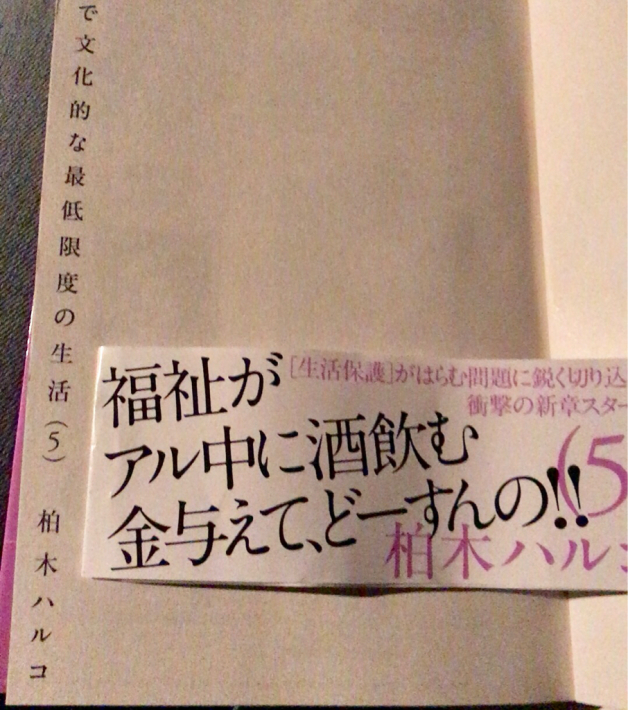 で文化的な最低限度の生活(5) 柏木ハルコ
[生活保護]がはらむ問題に鋭く切り込
衝撃の新章スター
福祉が
アル中に酒飲む
金与えて、どーすんの!!
(5
柏木ハルコ